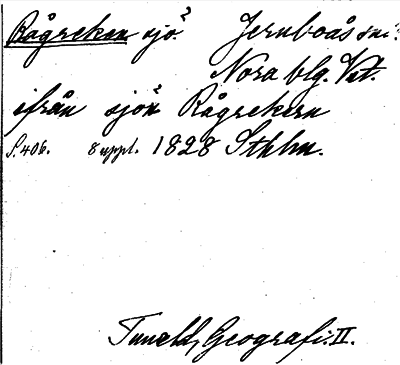 Rågreken sjö? Jernboås sn:
Nora blg. Vst.
ifrån sjön Rågreken
S. 406. 8 uppl. 1828 Sthlm.
Tuneld, Geografi. II.